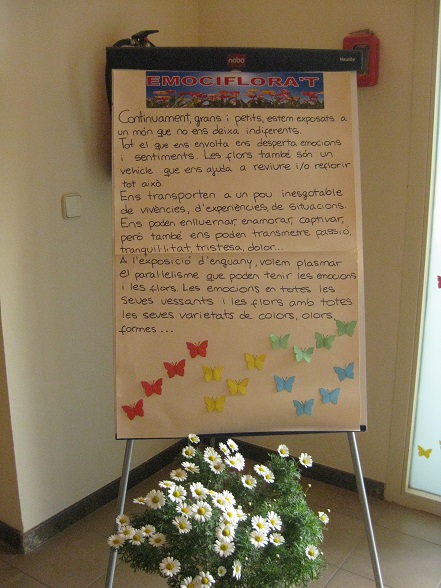 nobo
EMOCIFLORA'T
Contínuament, grans i petits, estem exposats a
un món que no ens deixa indiferents.
Tot el que ens envolta ens desperta emocions
i sentiments. Les flors també són un
vehicle que ens ajuda a reviure i/o reflorir
tot això.
Ens transporten a un pou inesgotable
de vivències, d'experiències, de situacions.
Ens poden enlluernar, enamorar, captivar,
però també ens poden transmetre passió,
tranquil·litat, tristesa, dolor...
A l'exposició d'enguany, volem plasmar
el paral·lelisme que poden tenir les emocions
i les flors. Les emocions en totes les
seves vessants i les flors amb totes
les seves varietats de colors, olors,
formes ...